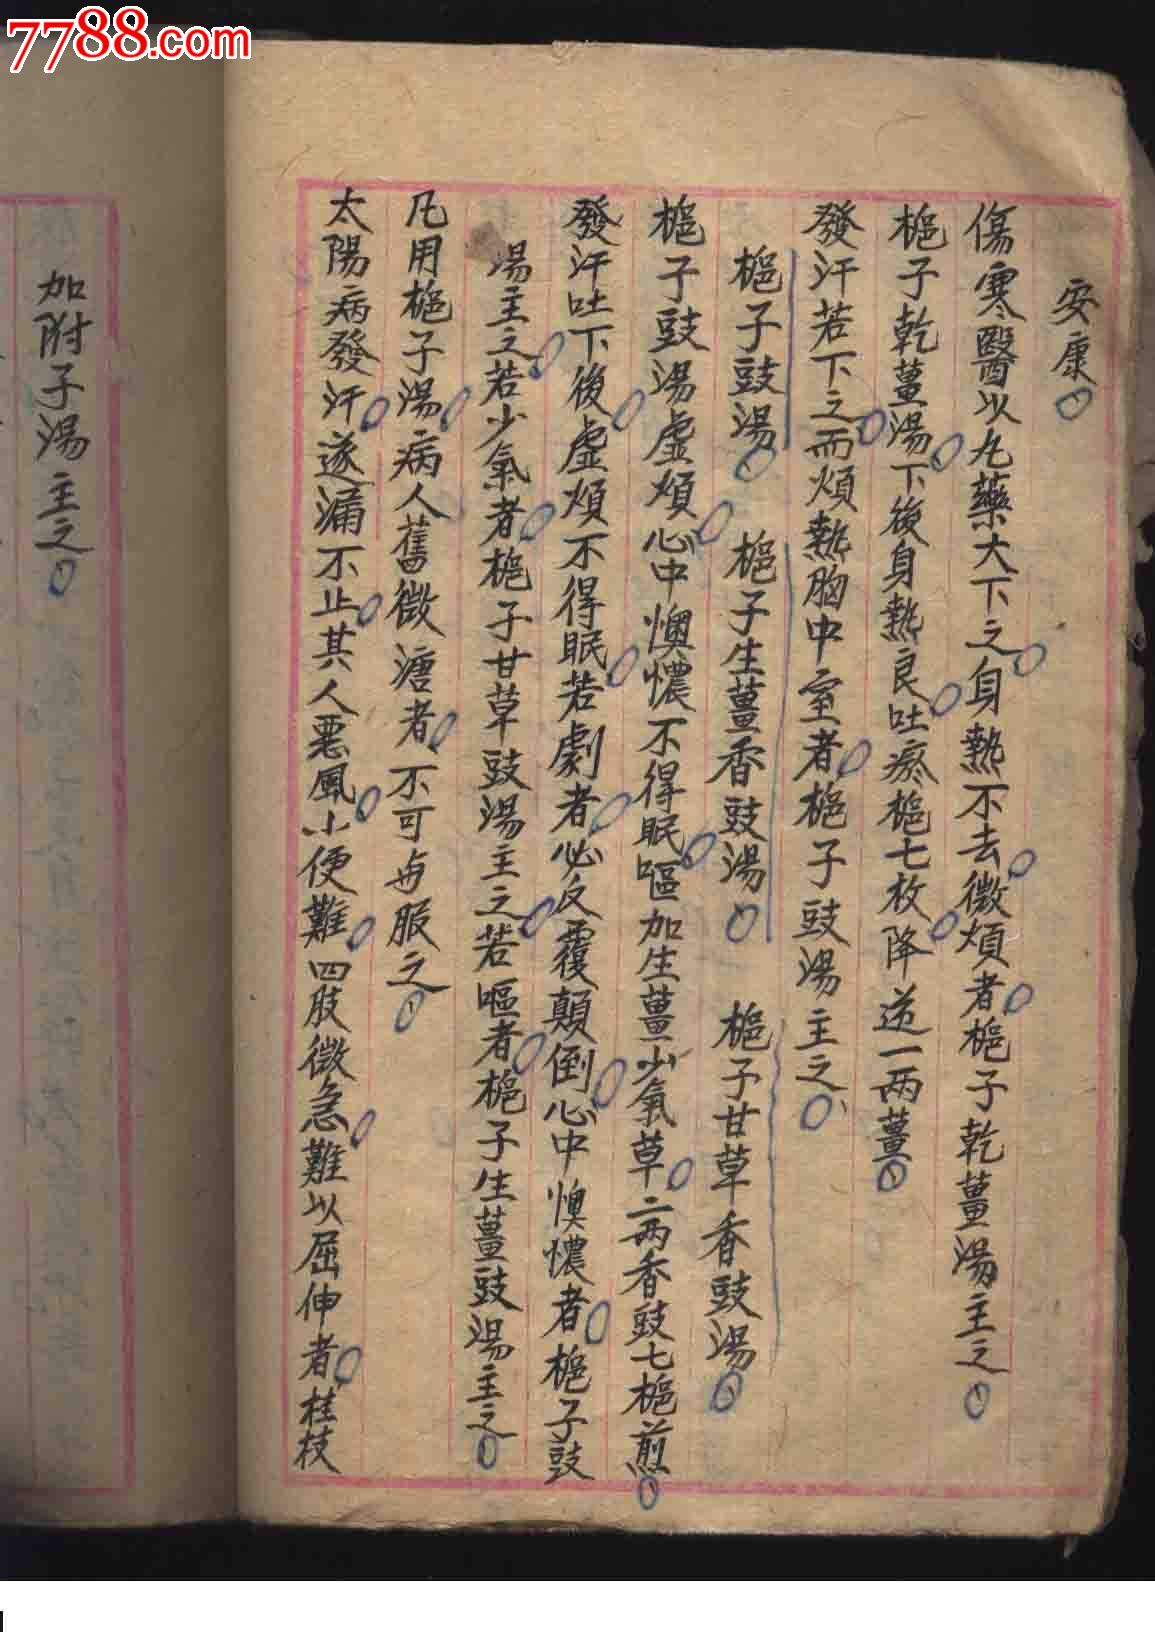 7788.com
安康
傷寒醫以丸藥大下之身熱不去微煩者梔子乾薑湯主之
梔子乾薑湯下後身熱良吐瘀梔七枚降逆一两薑
發汗若下之而煩熱胸中室者梔子豉湯主之
梔子豉湯 梔子生薑香豉湯 梔子甘草香豉湯
梔子豉湯虛煩心中懊憹不得眠嘔加生薑少氣草二两香豉七梔煎
發汗吐下後虛煩不得眠若劇者必反覆顛倒心中懊憹者梔子豉
湯主之若少氣者梔子甘草豉湯主之若嘔者梔子生薑豉湯主之
凡用梔子湯病人舊微溏者不可与服之
太陽病發汗遂漏不止其人惡風小便難四肢微急難以屈伸者桂枝
加附子湯主之